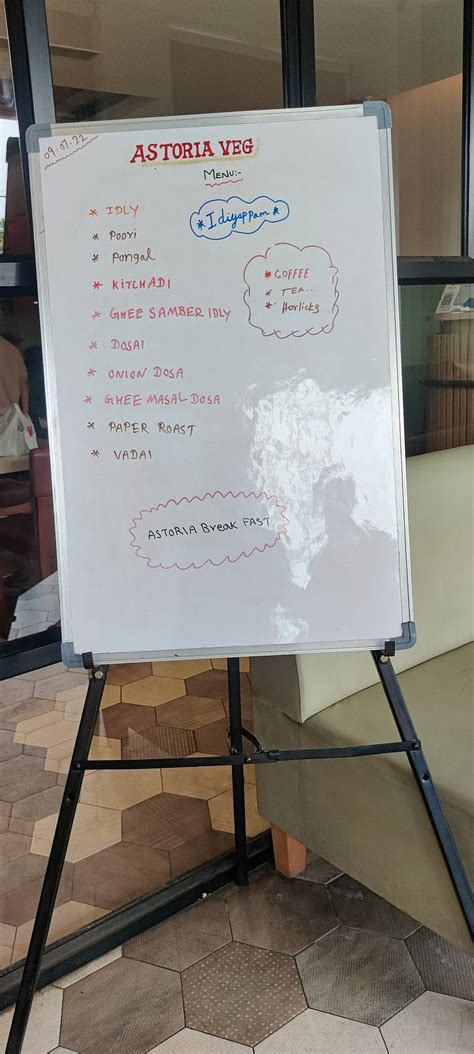 09.07.22
ASTORIA VEG
MENU:-
* IDLY
* POORI
* Pongal
* KITCHADI
* GHEE SAMBER IDLY
* DOSAI
* ONION DOSA
* GHEE MASAL DOSA
* PAPER ROAST
* VADAI
* Idiyappam *
* COFFEE
* TEA...
* Horlicks
ASTORIA Break FAST